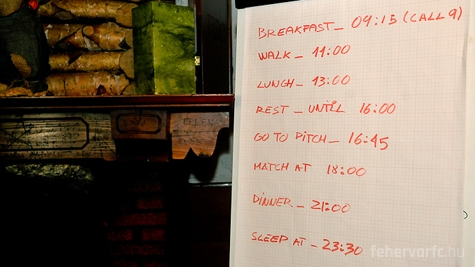 BREAKFAST_ 09:15 (CALL 9)
WALK_ 11:00
LUNCH_ 13:00
REST_ UNTIL 16:00
GO TO PITCH_ 16:45
MATCH AT 18:00
DINNER_ 21:00
SLEEP AT_ 23:30
fehervarfc.hu